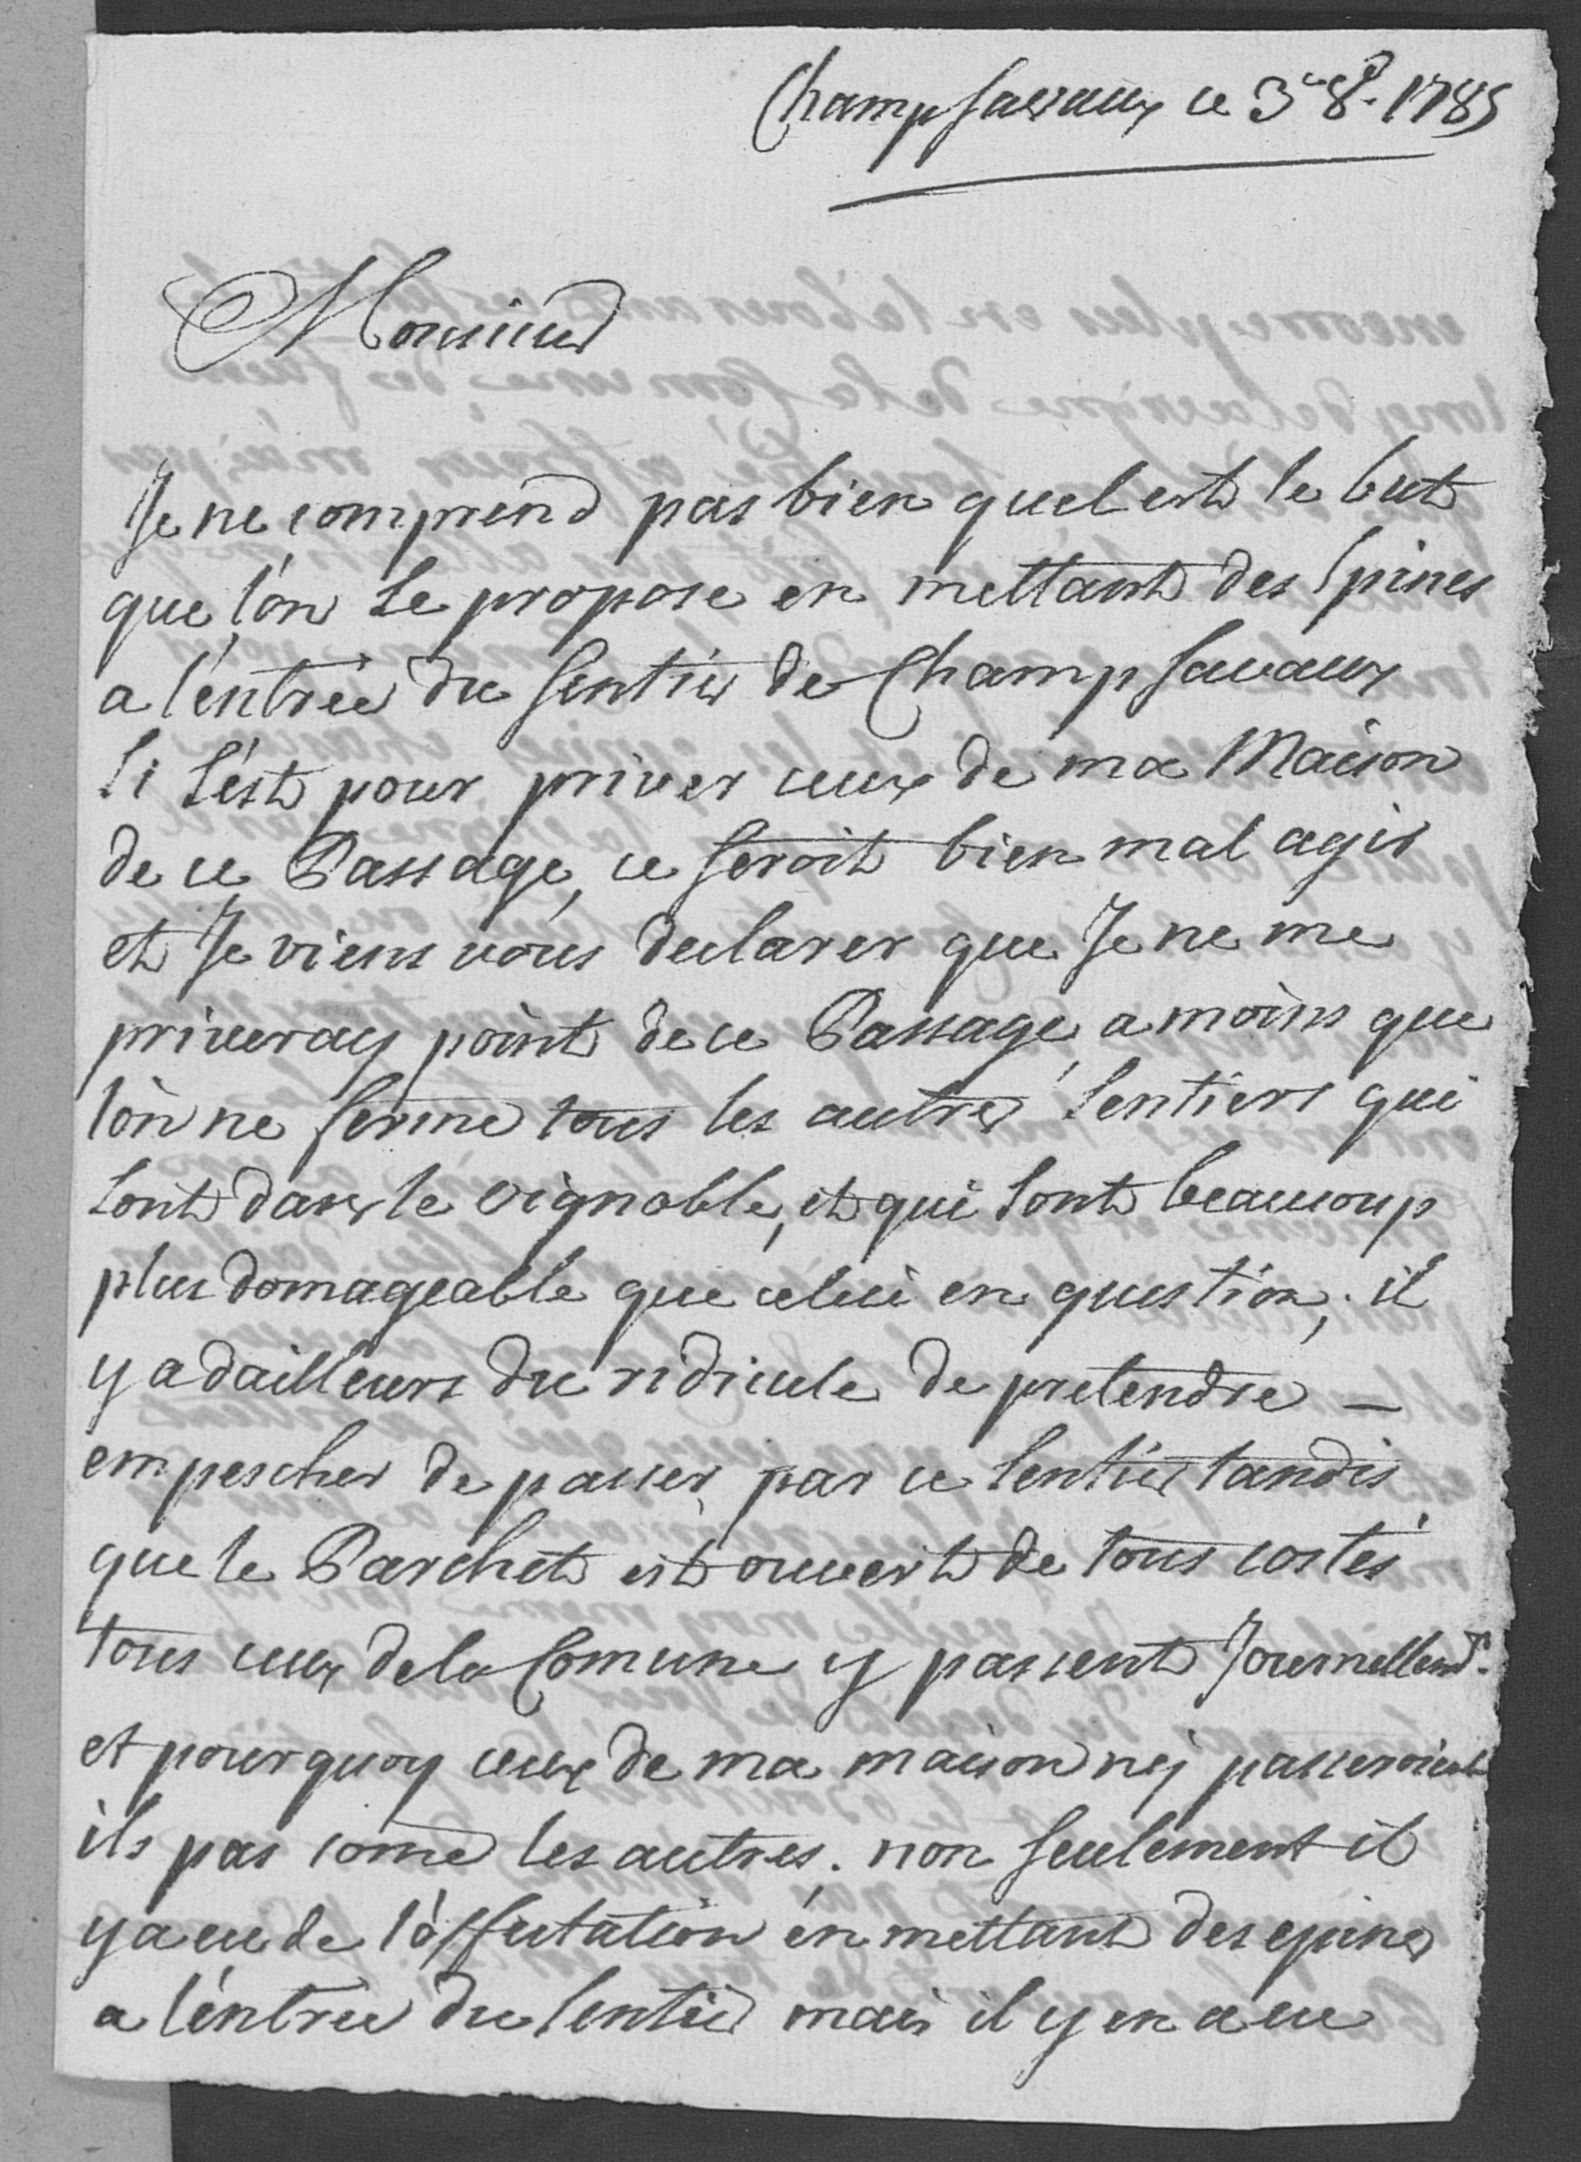 Champsavaux ce 3e 8e. 1785
Monsieur
Je ne comprend pas bien quel est le but
que l'on se propose en mettant des Epines
a l'entrée du Sentier de Champsavaux
Si s'est pour priver ceux de ma Maison
de ce Passage, ce seroit bien mal agir
et Je viens vous declarer que Je ne me
priveray point de ce Passage a moins que
l'on ne ferme tous les autres Sentiers qui
sont dans le vignoble, et qui sont beaucoup
plus domageable que celui en question; il
y a dailleurs du ridicule de pretendre –
empescher de passer par ce sentier tandis
que le Parchet est ouvert de tous costés
tous ceux de la Comune y passent Journellemt.
et pourquoy ceux de ma maison nÿ passeroient
ils pas come les autres. non seulement il
y a eu de l'affectation en mettant des epines
a l'entrée du sentier mais il y en a eu